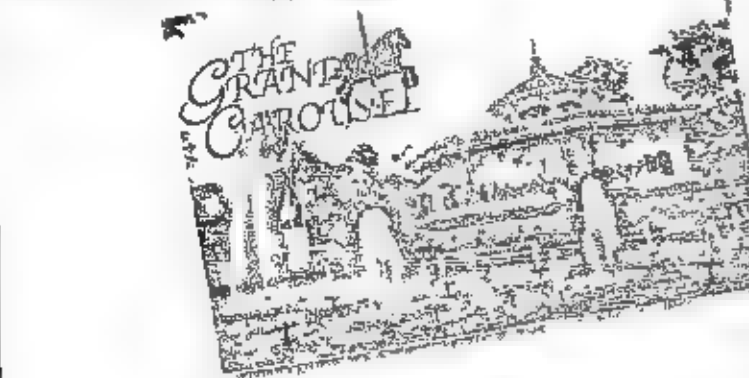 THE
GRAND
CAROUSEL